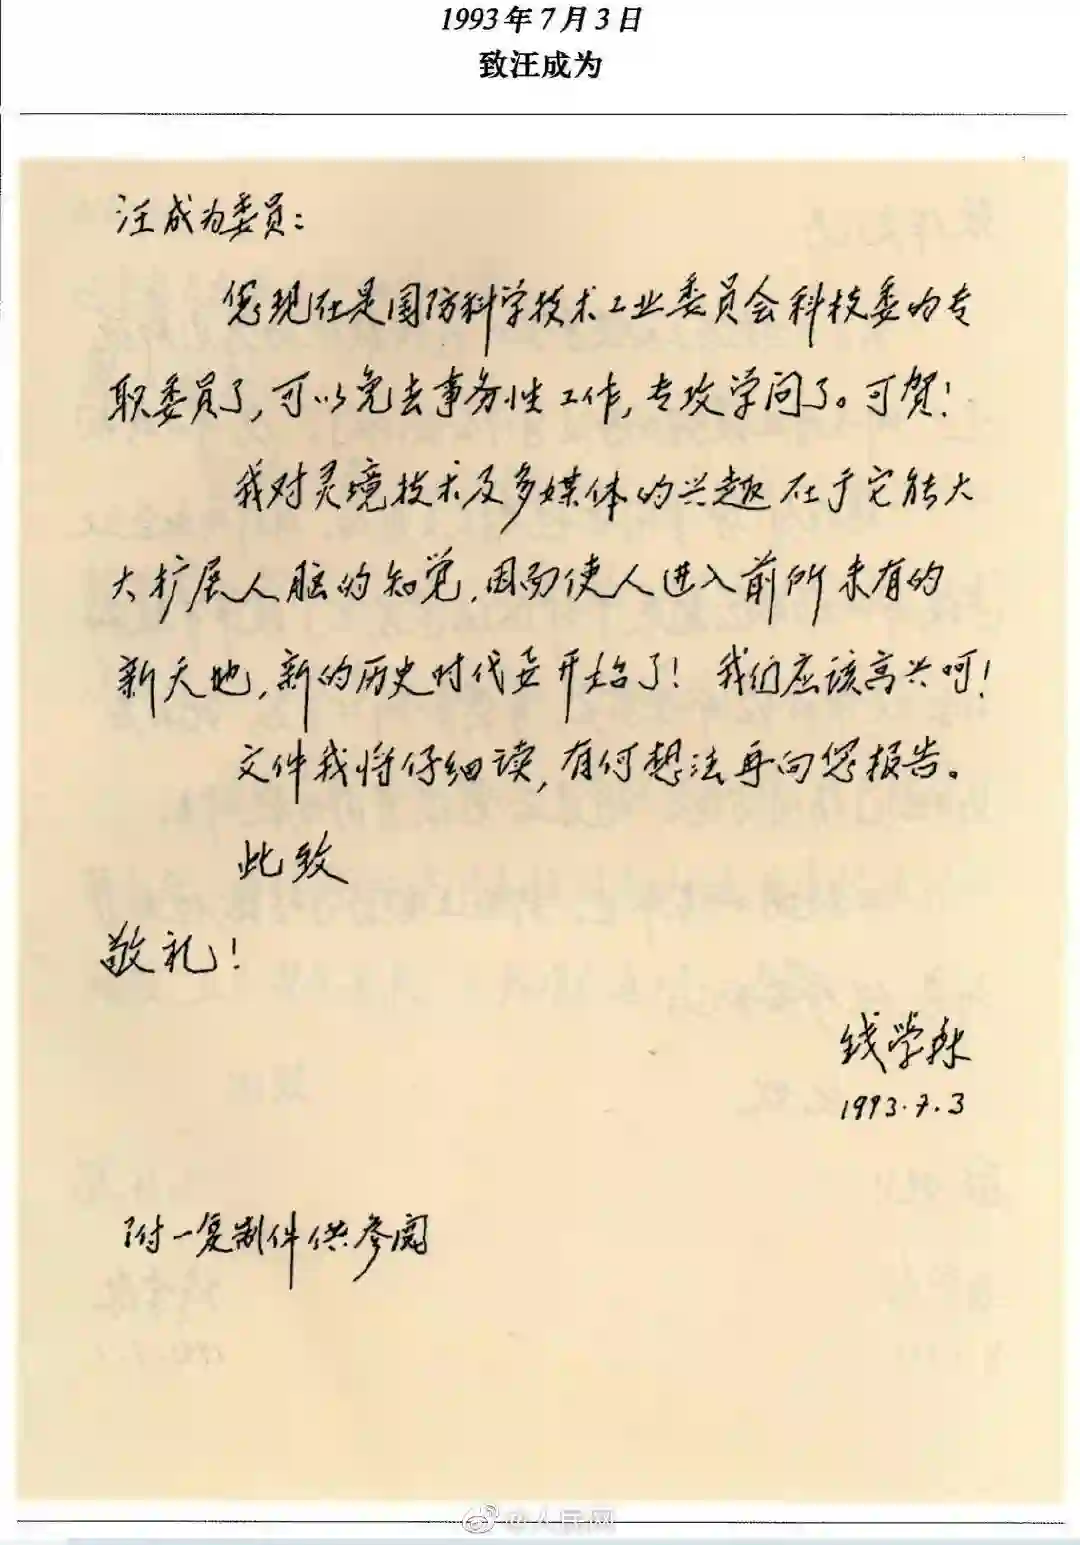 1993年7月3日
致汪成为
汪成为委员:
您现在是国防科学技术工业委员会科技委的专
职委员了,可以免去事务性工作,专攻学问了。可贺!
我对灵境技术及多媒体的兴趣在于它能大
大扩展人脑的知觉,因而使人进入前所未有的
新天地,新的历史时代要开始了!我们应该高兴呵!
文件我将仔细读,有何想法再向您报告。
此致
敬礼!
钱学森
1993.7.3
附一复制件供参阅
@人民网